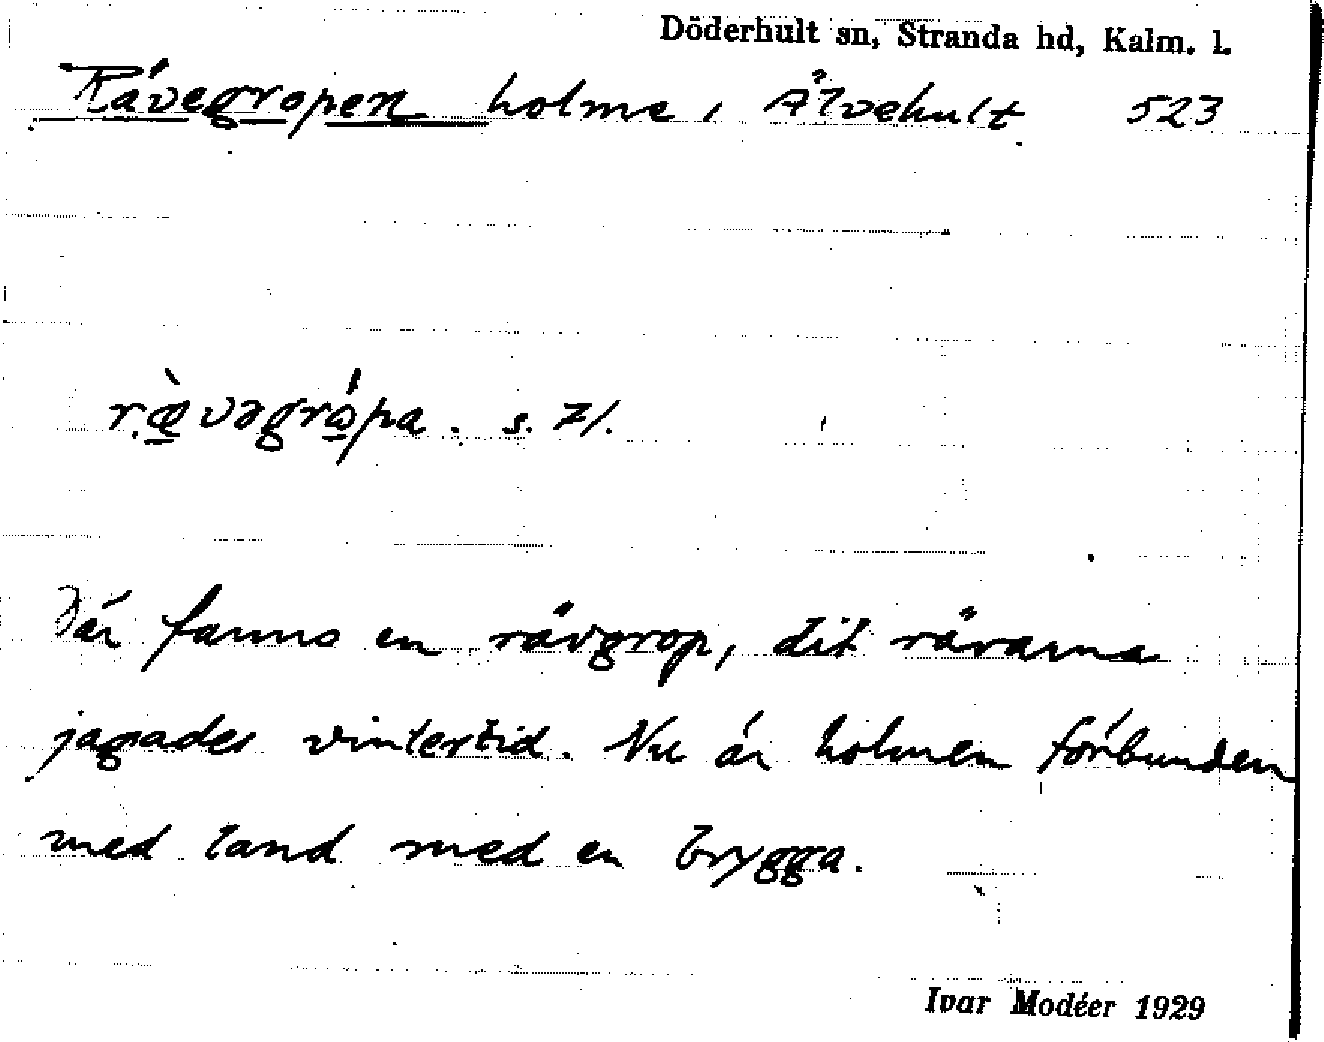 Döderhult sn, Stranda hd, Kalm. l.
Rävegropen holme, Älvehult 523
r.æ̀vəgrópa. s. Z/.
Där fanns en rävgrop, dit rävarna
jagades vintertid. Nu är holmen förbunden
med land med en brygga.
Ivar Modéer 1929